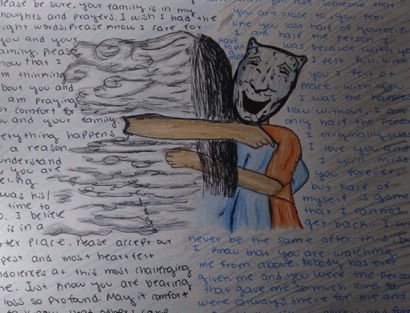 lease be sure, your family is in my
houghts and prayers. I wish I had the
right words. Please know I care for
you and your
amily. Please
now that I
m thinking
bout you and
am praying
or comfort for
you and your family.
verything happens
a reason
understand
you are
eling
was his/
time to
o. I believe
is in a
tter place. Please accept our
pest and most heartfelt
ndolences at this most challenging
me. Just know you are bearing
loss so profound. May it comfort
you lose someone that
you are close to, you feel
like you lost half of yourself.
am half me person I
was because with you
I felt full with
you I felt at
peace. with you
I was the happ
now without I am
only half the person
I originally was
I love you and
I will miss
you forever
but half of
myself is gone
that I cannot
get back. I will
never be the same after this
I know that you are watching
me from above. Nobody has ever
given me and you were the person
that gave me so much love
were always there for me and